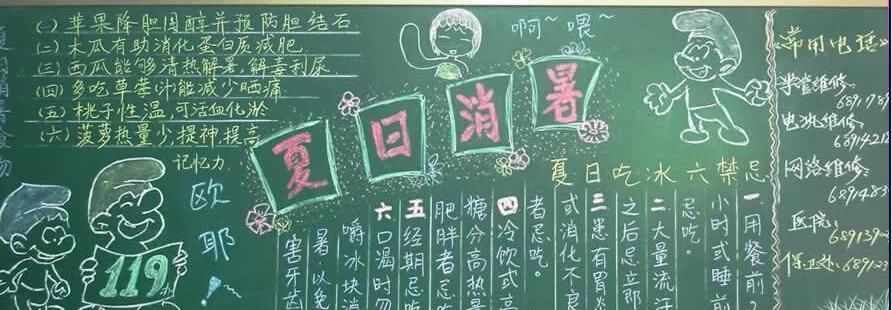 (一) 苹果降胆固醇并预防胆结石
(二) 木瓜有助消化蛋白质减肥
(三) 西瓜能够清热解暑,解毒利尿
(四) 多吃草莓汁能减少晒痛
(五) 桃子性温,可活血化淤
(六) 菠萝热量少提神提高
记忆力
欧耶!
119
夏日消暑
啊~喂~
夏日吃冰六禁忌
一用餐前2
小时或睡前
忌吃。
二大量流汗
之后忌立即
三患有胃炎
或消化不良
者忌吃。
四冷饮或高
糖分高热量
肥胖者忌吃
五经期忌吃
六口渴时勿
嚼冰块消
暑以免
害牙齿
常用电话
学管维修:
电视维修:
网络维修:
医院:
保卫处: